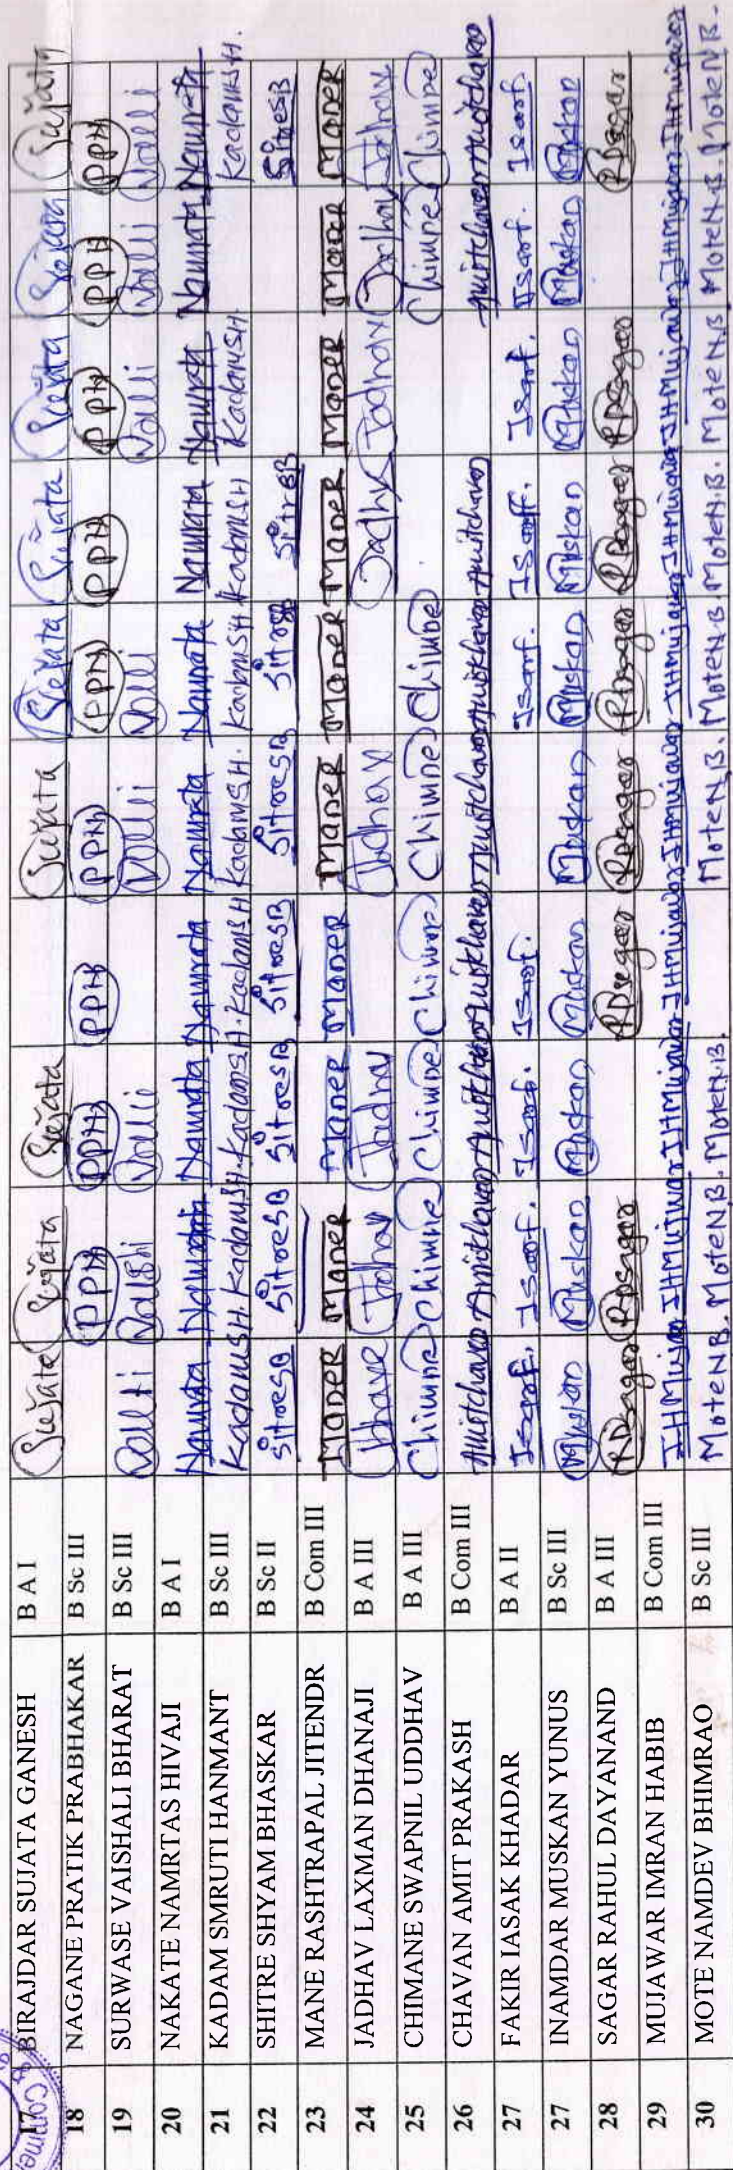 17 BIRAJDAR SUJATA GANESH B A I Sujata Sujata Sujata Sujata Sujata Sujata Sujata Sujata Sujata
18 NAGANE PRATIK PRABHAKAR B Sc III PPN PPN PPN PPN PPN PPN PPN PPN PPN
19 SURWASE VAISHALI BHARAT B Sc III
20 NAKATE NAMRTAS HIVAJI B A I Namrata Namrata Namrata Namrata Namrata Namrata Namrata Namrata Namrata
21 KADAM SMRUTI HANMANT B Sc III KadamSH. KadamSH. KadamSH. KadamSH. KadamSH. KadamSH. KadamSH KadamSH. KadamSH.
22 SHITRE SHYAM BHASKAR B Sc II
23 MANE RASHTRAPAL JITENDR B Com III ManeR ManeR ManeR ManeR ManeR ManeR ManeR ManeR ManeR ManeR
24 JADHAV LAXMAN DHANAJI B A III Jadhav Jadhav Jadhav Jadhav Jadhav Jadhav Jadhav
25 CHIMANE SWAPNIL UDDHAV B A III Chimne Chimne Chimne Chimne Chimne Chimne Chimne Chimne
26 CHAVAN AMIT PRAKASH B Com III Amitchavan Amitchavan Amitchavan Amitchavan Amitchavan Amitchavan Amitchavan Amitchavan Amitchavan
27 FAKIR IASAK KHADAR B A II
27 INAMDAR MUSKAN YUNUS B Sc III Muskan Muskan Muskan Muskan Muskan Muskan Muskan Muskan Muskan Muskan
28 SAGAR RAHUL DAYANAND B A III RDsagar RDsagar RDsagar RDsagar RDsagar RDsagar RDsagar RDsagar
29 MUJAWAR IMRAN HABIB B Com III IHMujawar IHMujawar IHMujawar IHMujawar IHMujawar IHMujawar IHMujawar IHMujawar IHMujawar IHMujawar
30 MOTE NAMDEV BHIMRAO B Sc III MoteNB. MoteNB. MoteN.B. MoteN.B. MoteN.B. MoteN.B. MoteN.B. MoteN.B. MoteN.B.